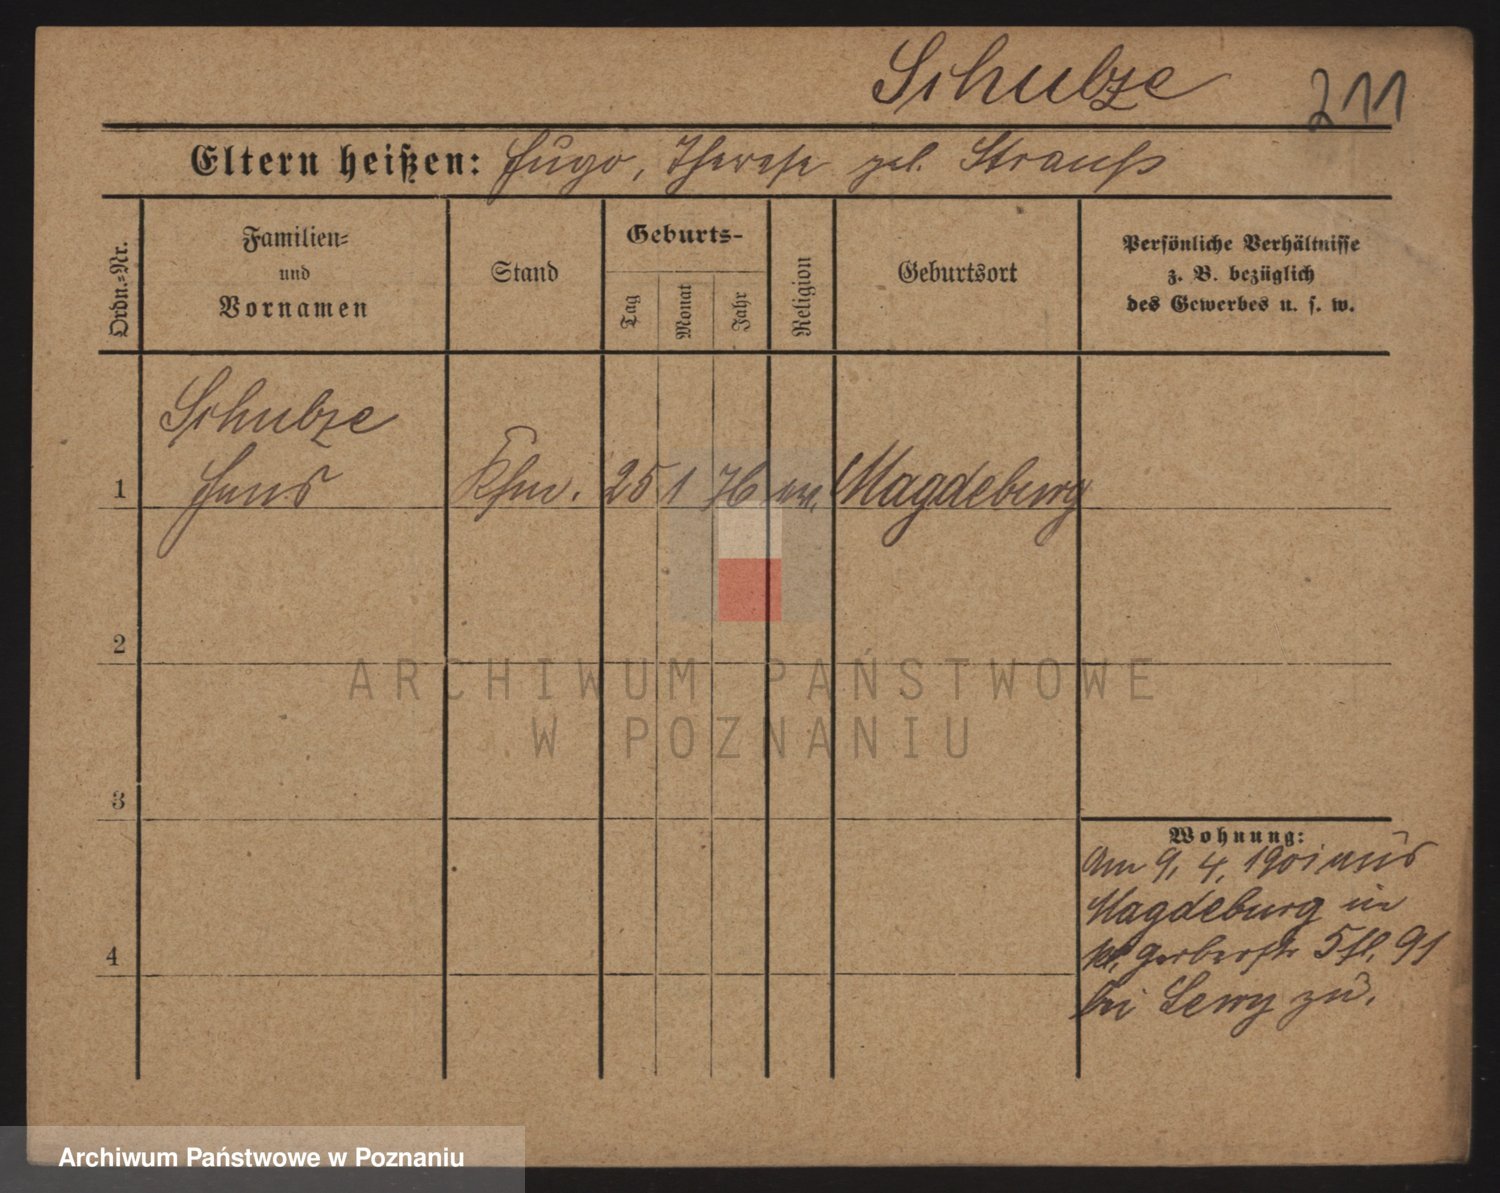 Schulze 211
Eltern heißen: Hugo, Therese geb. Strauß
Ordn.-Nr.
Familien-
und
Vornamen
Stand
Geburts-
Tag
Monat
Jahr
Religion
Geburtsort
Persönliche Verhältnisse
z. B. bezüglich
des Gewerbes u. s. w.
Schulze
1 Hans Kfm. 25 1 76 ev. Magdeburg
2
3
4
Wohnung:
Am 9. 4. 1901 aus
Magdeburg in
Gerberstr 5 91
bei Lewy zu.
ARCHIWUM PAŃSTWOWE
W POZNANIU
Archiwum Państwowe w Poznaniu